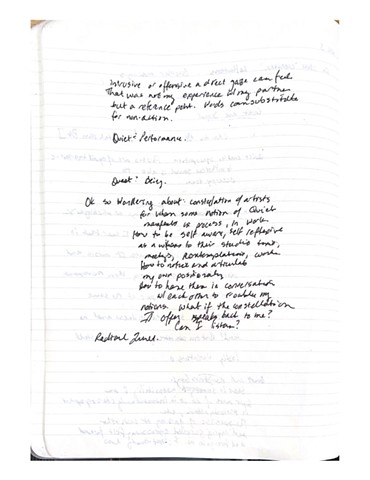 intrusive or offensive a direct gaze can feel
that was not my experience w/ my partner
but a reference point. Words can substitute
for non-action.
Quiet: Performance.
Quiet: Being.
Ok so Wondering about constellation of artists
for whom some notion of Quiet
manifests in process, in work
how to be self aware, self reflexive
as a witness to their studio time,
making, contemplations, work.
How to notice and articulate
my own positionality
how to have them in conversation
w/ each other to trouble my
notions. What if the constellation
I offer speaks back to me?
Can I listen?
Radical